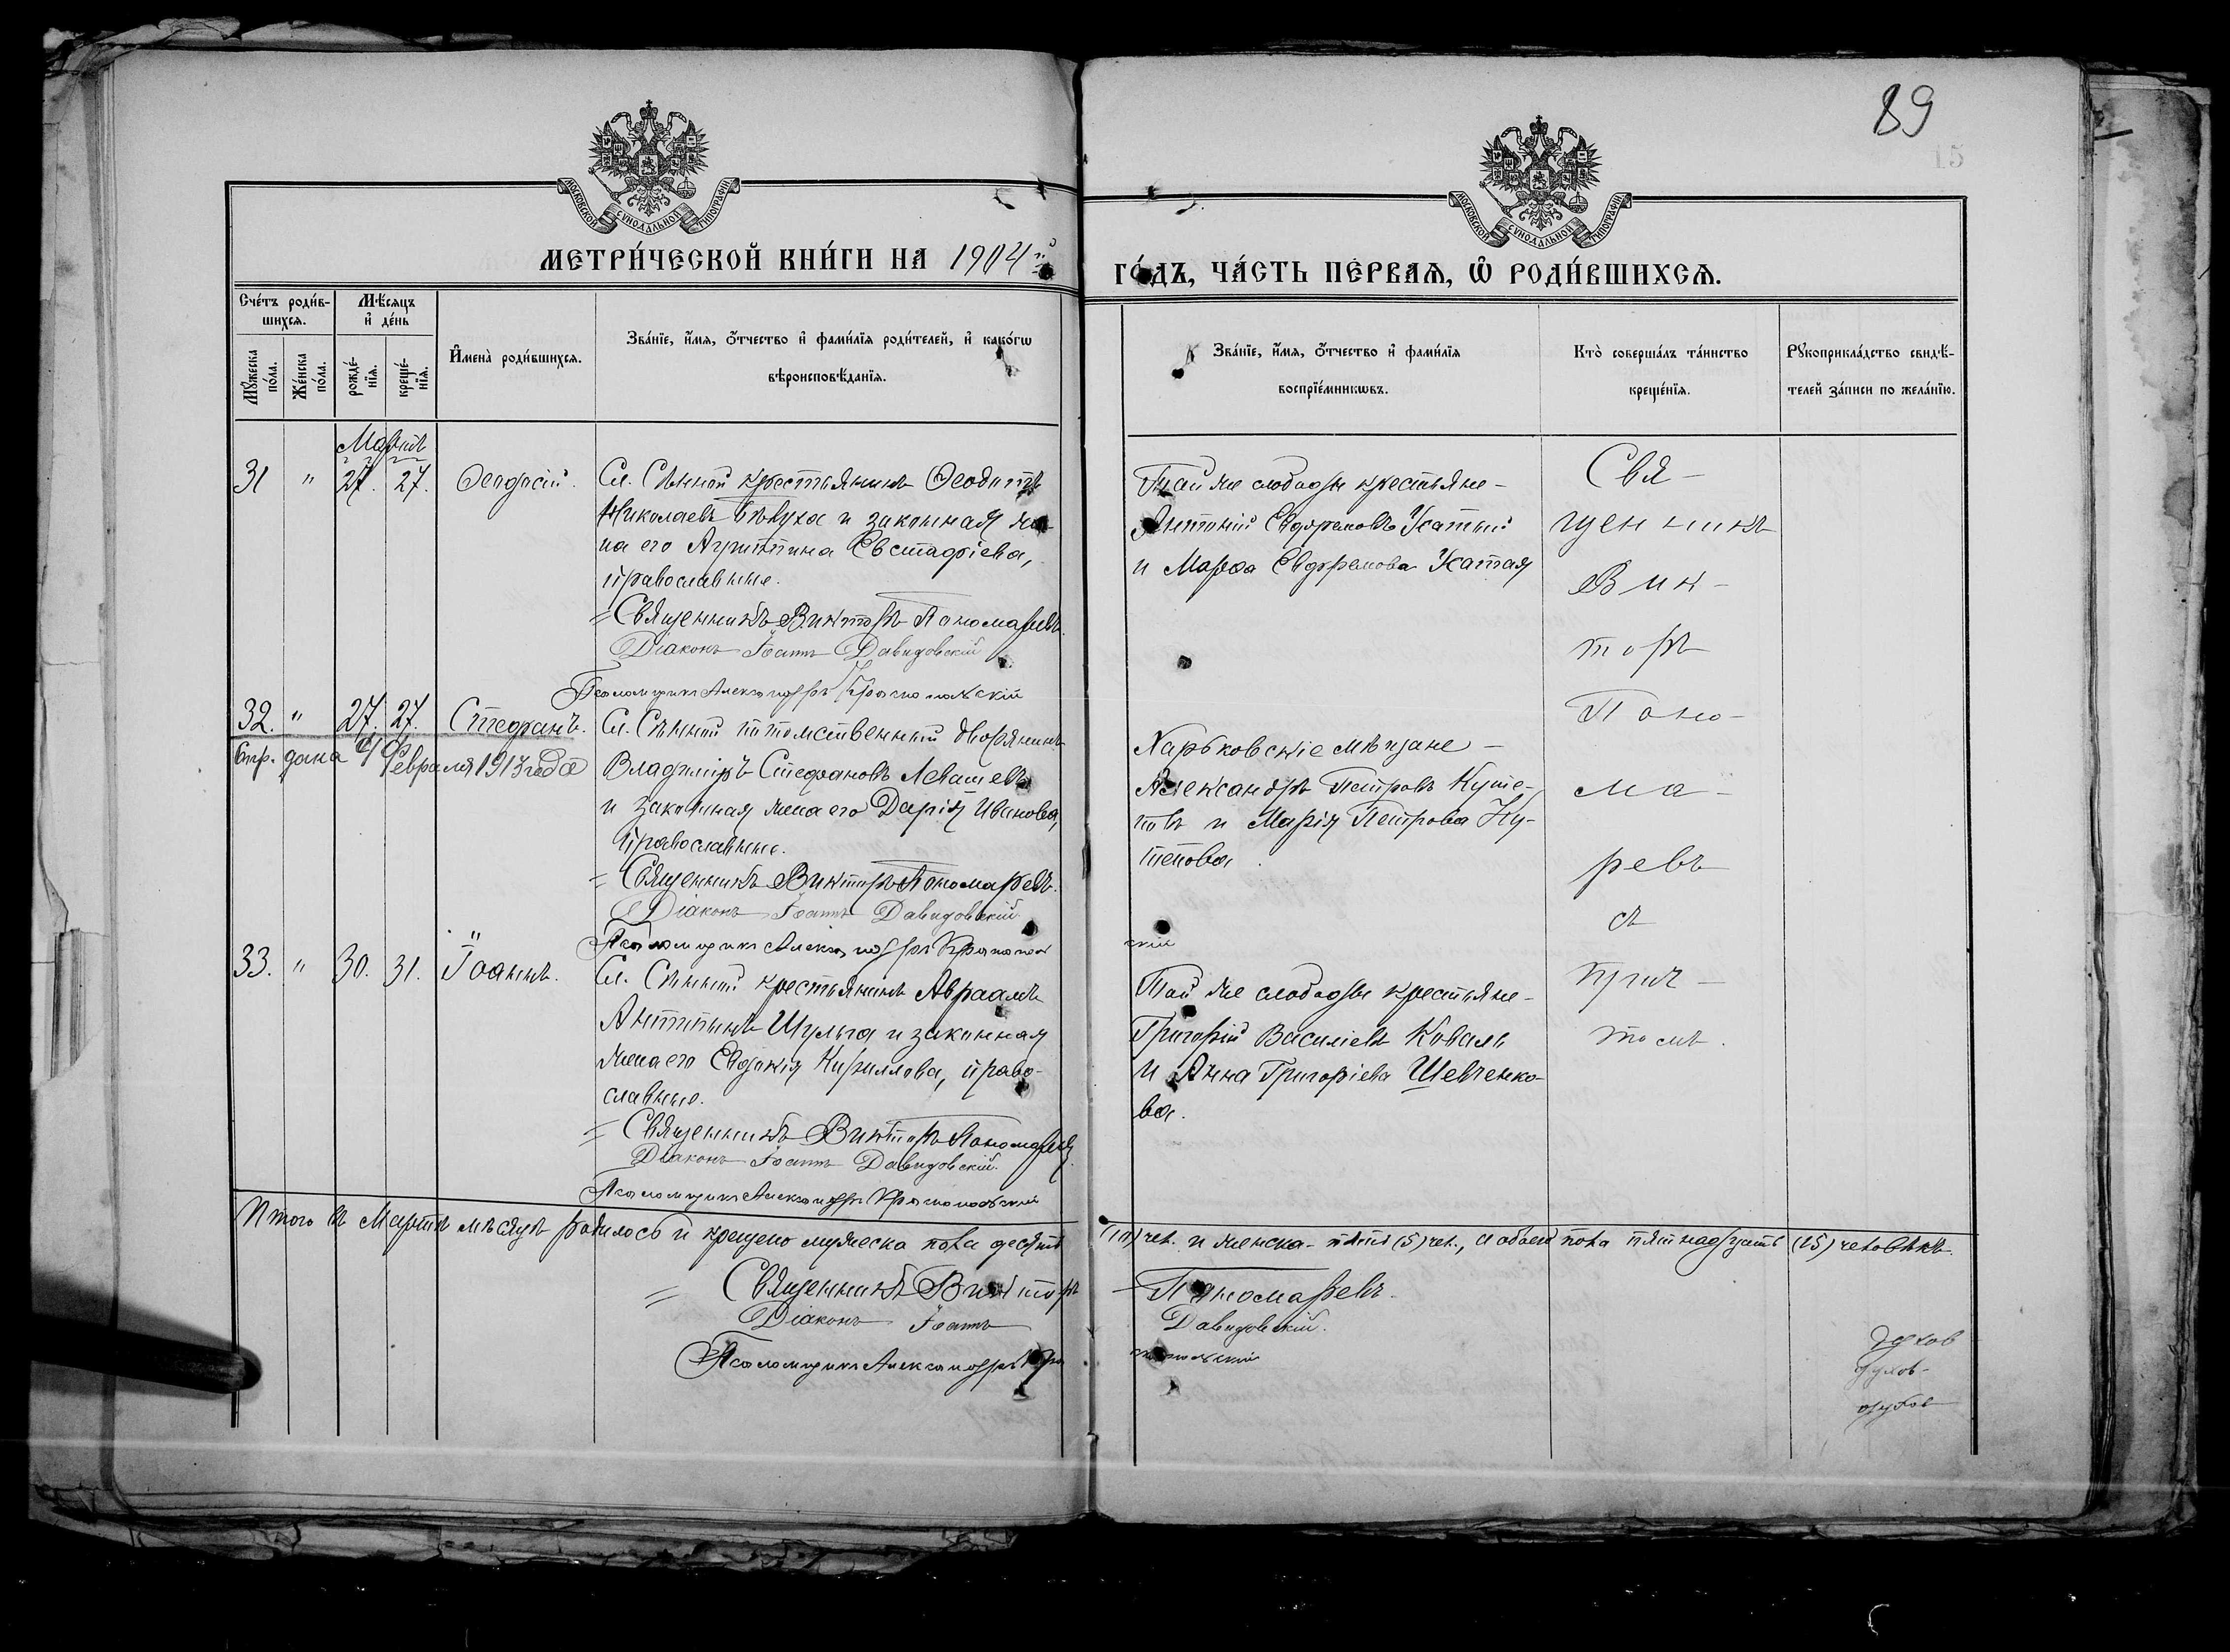 89
15
МОСКОВСКОЙ СУНОДАЛЬНОЙ ТИПОГРАФІИ
МОСКОВСКОЙ СУНОДАЛЬНОЙ ТИПОГРАФІИ
МЕТРИ́ЧЕСКОЙ КНИ́ГИ НА 1904й
ГО́ДЪ, ЧА́СТЬ ПЕ́РВАѦ, Ѡ РОДИ́ВШИХСѦ.
Сче́тъ роди́в-
шихсѧ.
Мꙋ́жеска по́ла.
Же́нска по́ла.
Мѣ́сяцъ
и де́нь
рожде́-
нїѧ.
креще́-
нїѧ.
Имена̀ роди́вшихсѧ.
Зва́нїе, и́мѧ, о́тчество и фами́лїѧ роди́телей, и како́гѡ
вѣроисповѣ́данїѧ.
Зва́нїе, и́мѧ, о́тчество и фами́лїѧ
воспрїе́мникѡвъ.
Кто̀ соверша́лъ та́инство
креще́нїѧ.
Рꙋкоприкла́дство свидѣ́-
телей за́писи по жела́нїю.
Мартъ
31 " 27. 27. Ѳеодосій. Сл. Сѣнной крестьянинъ Ѳеодотъ
Николаевъ и законная же-
на его Агриппина Евстафіева,
православные.
Священникъ Викторъ Пономаревъ.
Діаконъ Іоаннъ Давидовскій
Псаломщикъ Александръ Краснопольскій
Той же слободы крестьяне-
Антоній Евфремовъ Усатый
и Марѳа Евфремова Усатая
Свя-
щенникъ
Вик-
торъ
Поно-
ма-
ревъ
съ
прич-
томъ.
32. " 27. 27. Стефанъ. Сл. Сѣнной потомственный дворянинъ
дана Февраля 1913 года
Владиміръ Стефановъ Левашевъ
и законная жена его Дарія Иванова,
православные.
Священникъ Викторъ Пономаревъ.
Діаконъ Іоаннъ Давидовскій
Псаломщикъ Александръ Краснополь
скій
Харьковскіе мѣщане -
Александръ Петровъ Куте-
повъ и Марія Петрова Ку-
тепова
33. " 30. 31. Іоаннъ. Сл. Сѣнной крестьянинъ Авраамъ
Антипинъ Шульга и законная
жена его Евдокія Кириллова, право-
славные.
Священникъ Викторъ Пономаревъ
Діаконъ Іоаннъ Давидовскій.
Псаломщикъ Александръ Краснопольскій
Той же слободы крестьяне-
Григорій Василіевъ Коваль
и Анна Григоріева Шевченко-
ва.
Итого въ Мартѣ мѣсяцѣ родилось и крещено мужеска пола десять (10) чел. и женска - пять (5) чел., а обоего пола пятнадцать (15) человѣкъ.
Священникъ Викторъ Пономаревъ.
Діаконъ Іоаннъ Давидовскій.
Псаломщикъ Александръ Краснопольскій